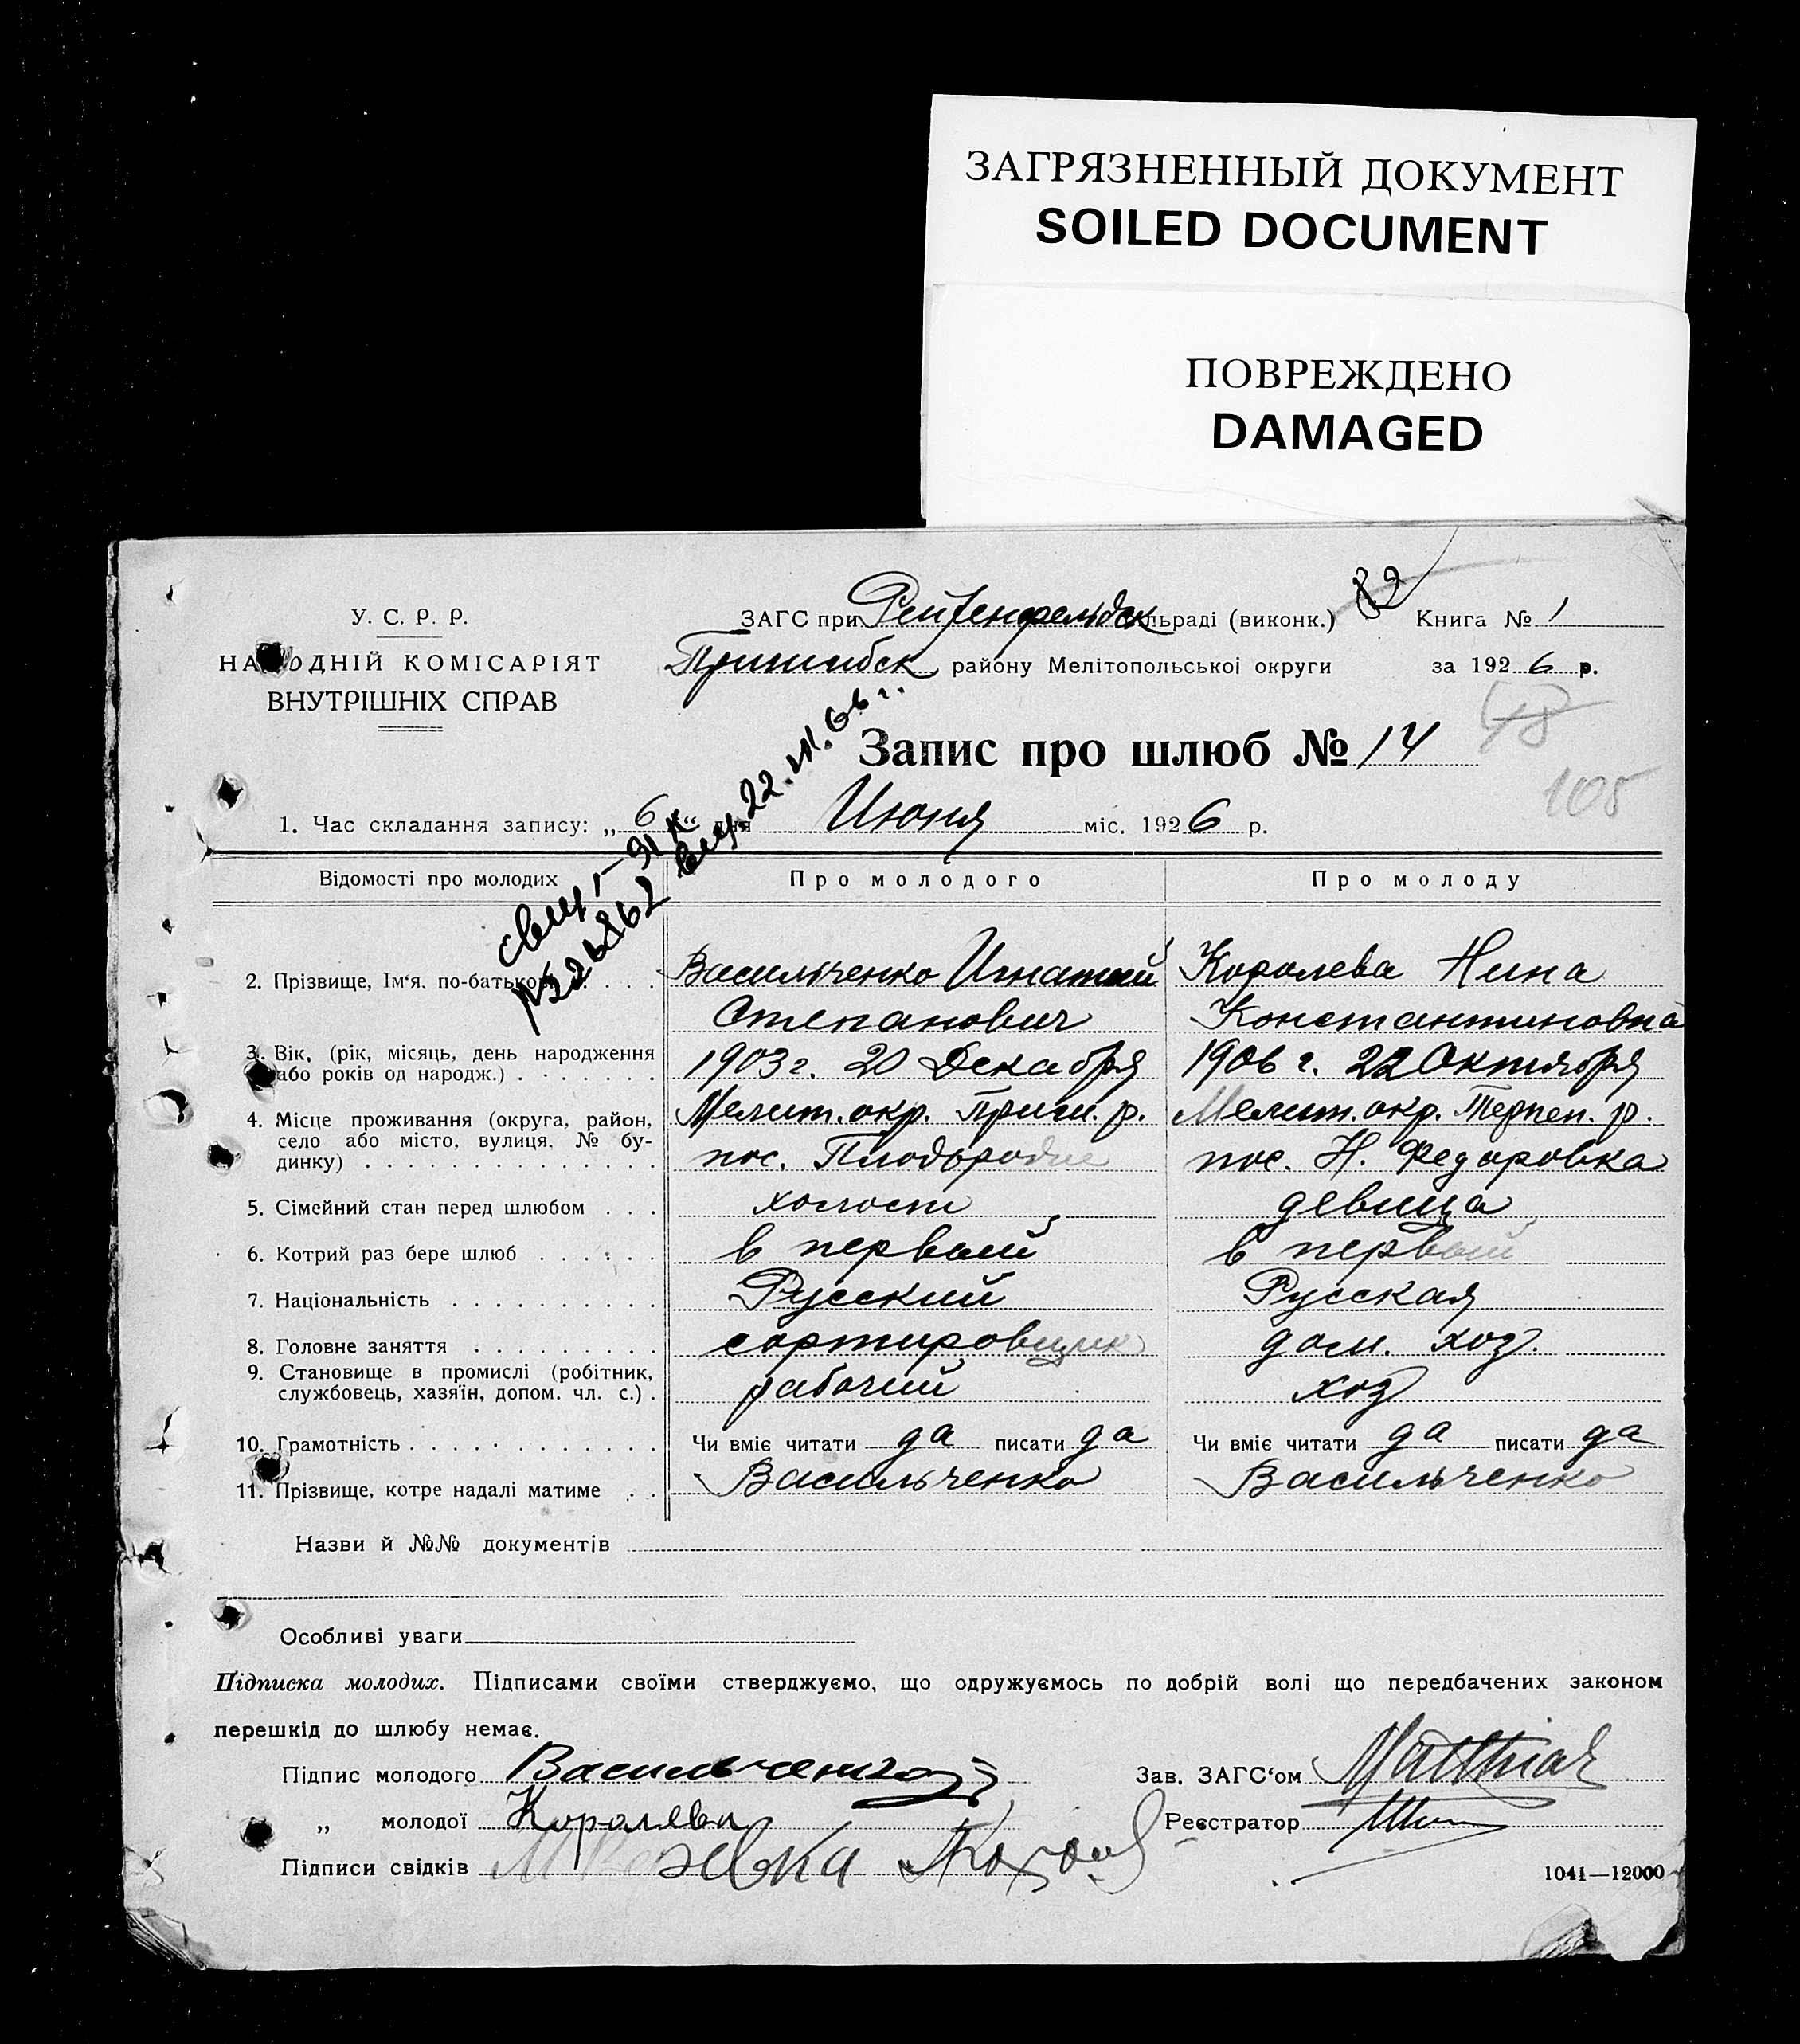 ЗАГРЯЗНЕННЫЙ ДОКУМЕНТ
SOILED DOCUMENT
ПОВРЕЖДЕНО
DAMAGED
У. С. Р. Р.
НАРОДНІЙ КОМІСАРІЯТ
ВНУТРІШНІХ СПРАВ
ЗАГС при Рейхенфельдск льраді (виконк.)
82
Книга № 1
Пришибск району Мелітопольської округи за 1926 р.
Запис про шлюб № 14
48
105
1. Час складання запису: „ 6 “ дня Июня міс. 1926 р.
№ 526862
22. 66 г.
Відомості про молодих Про молодого Про молоду
2. Прізвище, Ім'я, по-батькові . . . Васильченко Игнатий Королева Нина
Степанович Константиновна
3. Вік, (рік, місяць, день народження
або років од народж.) . . . . . . . 1903 г. 20 Декабря 1906 г. 22 Октября
4. Місце проживання (округа, район,
село або місто, вулиця, № бу-
динку) . . . . . . . . . . . . . .
Мелит. окр. Приш. р. Мелит. окр. Терпен. р.
пос. Плодородие пос. Н. Федоровка
5. Сімейний стан перед шлюбом . . . холост девица
6. Котрий раз бере шлюб . . . . . . в первый в первый
7. Національність . . . . . . . . . . Русский Русская
8. Головне заняття . . . . . . . . . сортировщик дом. хоз.
9. Становище в промислі (робітник,
службовець, хазяїн, допом. чл. с.) . рабочий хоз
10. Грамотність . . . . . . . . . . . . Чи вміє читати да писати да Чи вміє читати да писати да
11. Прізвище, котре надалі матиме . . Васильченко Васильченко
Назви й №№ документів
Особливі уваги
Підписка молодих. Підписами своїми стверджуємо, що одружуємось по добрій волі що передбачених законом
перешкід до шлюбу немає.
Підпис молодого Васильченко Зав. ЗАГС'ом Matthias
„ молодої Королева Реєстратор
Підписи свідків
1041—12000